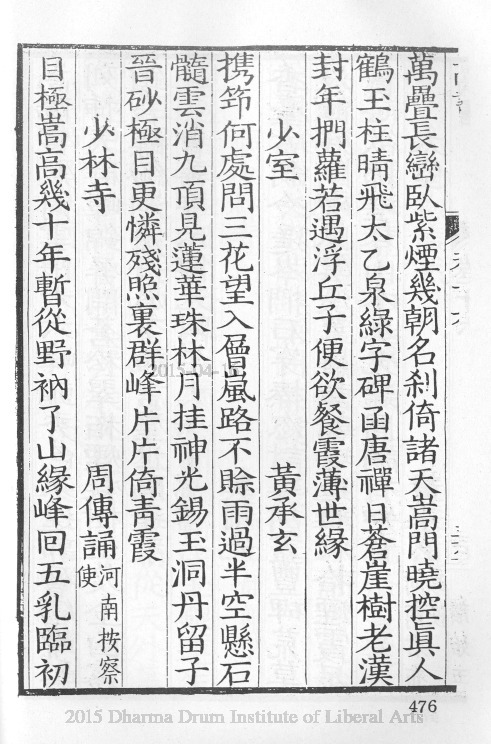 萬疊長巒臥紫煙幾朝名刹倚諸天嵩門曉控眞人
鶴玉柱晴飛太乙泉綠字碑函唐禪日蒼崖樹老漢
封年捫蘿若遇浮丘子便欲餐霞薄世緣
少室 黃承玄
携笻何處問三花望入層嵐路不賖雨過半空懸石
髓雲消九頂見蓮華珠林月挂神光錫玉洞丹留子
晉砂極目更憐殘照裏群峰片片倚青霞
少林寺 周傳誦河南按察使
目極嵩高幾十年暫從野衲了山緣峰回五乳臨初
476
2015 Dharma Drum Institute of Liberal Arts